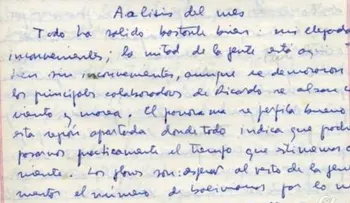 Analisis del mes
Todo ha salido bastante bien: mi llegada
inconvenientes; la mitad de la gente está aqui
bien sin inconvenientes, aunque se demoraron
los principales colaboradores de Ricardo se alzan c
viento y marea. El panorama se perfila bueno
esta región apartada donde todo indica que podr
pasarnos practicamente el tiempo que estimemos c
niente. Los planes son: esperar el resto de la gen
mentar el número de bolivianos por lo m